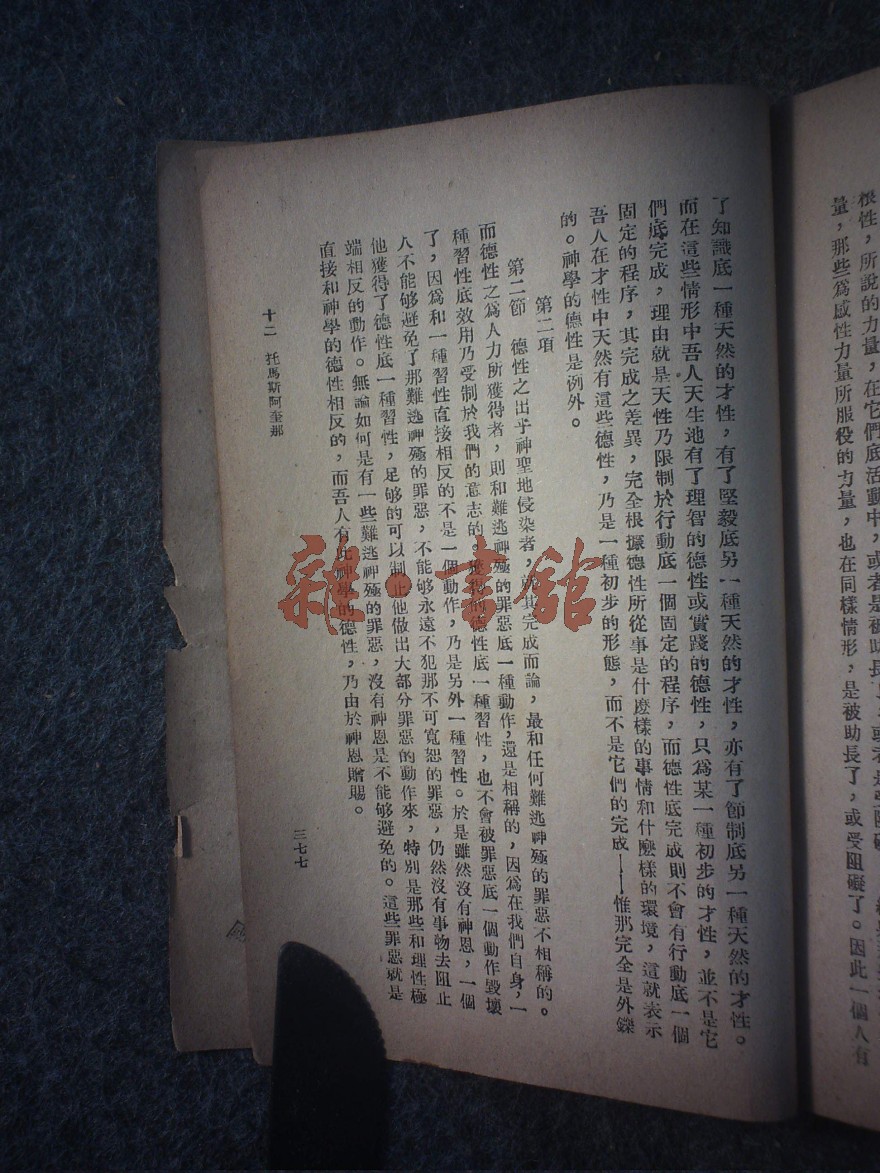 根性，所說的力量，在它們底活動中，或者是被助長
量，那些爲感性力量所服役的力量，也在同樣情形，是被助長了，或受阻礙了。因此一個人有
了知識底一種天然的才性，有了堅毅底另一種天然的才性，亦有了節制底另一種天然的才性。
而在這些情形中吾人天生地有了理智的德性或實踐的德性，只爲某一種初步的才性，並不是它
們底完成，理由就是天性乃限制於行動底一個固定的程序，而德性底完成則不會有行動底一個
固定的程序，其完成之差異，完全根據德性所從事是什麼樣的事情和什麼樣的環境，這就表示
吾人在才性中天然有這些德性，乃是一種初步的形態，而不是它們的完成——惟那完全是外鑠
的。神學的德性是例外。
第二項
第二節　德性之出乎神聖地侵染者，就其完成而論，最和任何難逃神殛的罪惡不相稱的。
而德性之爲人力所獲得者，則和難逃神殛的罪惡底一種動作，還是相稱的，因爲在我們自身，一
種習性底效用乃受制於我們的意志的。獲得的德性底一種習性，也不會被罪惡底一個動作毀壞
了，因爲和一種習性直接相反的不是一個動作，乃是另外一種習性。於是雖然沒有神恩，一個
人不能够避免了那難逃神殛的罪惡，不能够永遠不犯那不可寬恕的罪惡，仍然沒有事物去阻止
他獲得了德性底一種習性，足够的可以制止他做出大部分罪惡的動作來，特別是那些和理性極
端相反的動作。無論如何是有一些難逃神殛的罪惡，沒有神恩是不能够避免的。這些罪惡就是
直接和神學的德性相反的，而吾人有此神學的德性，乃由於神恩贈賜。
十二　托馬斯阿奎那
三七七
雜·書舘